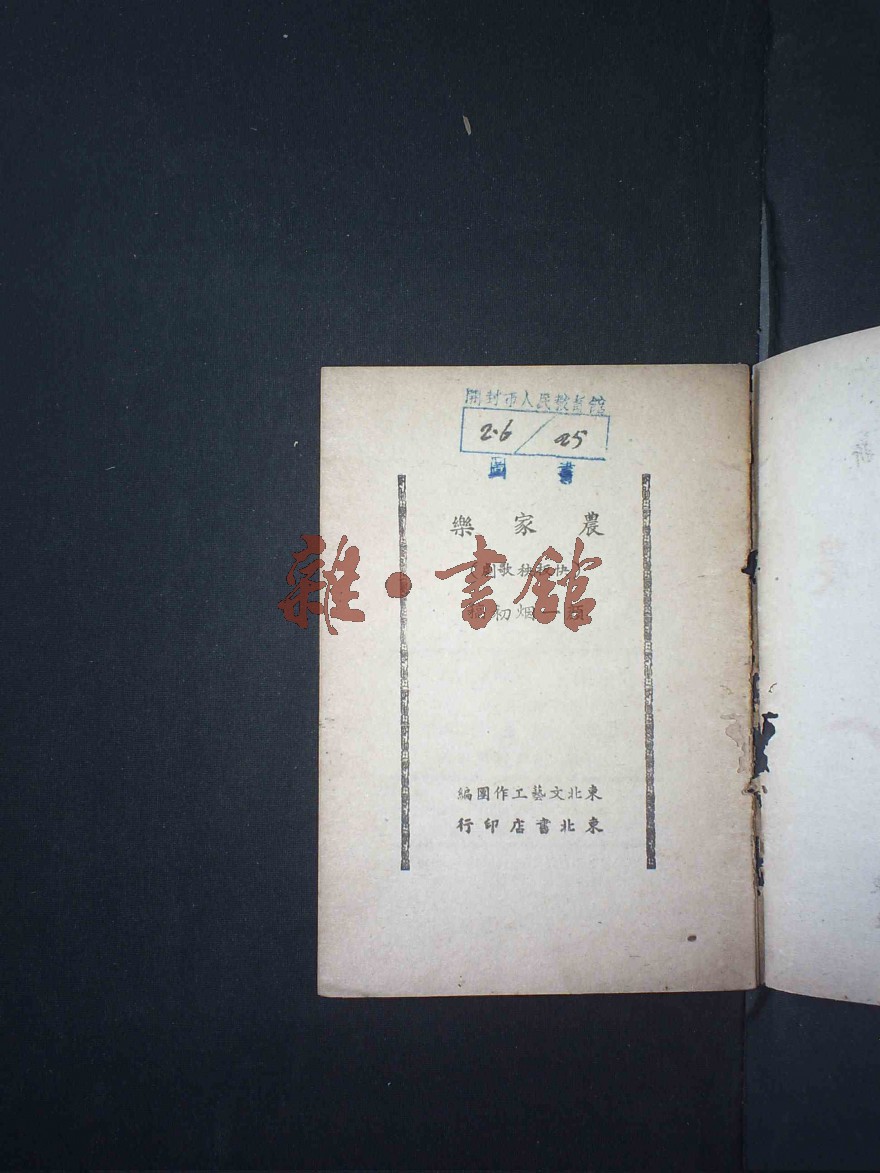 開封市人民教育館
2.6 / 25
圖書
農家樂
秧歌
顏一烟初稿
東北文藝工作團編
東北書店印行
雜·書館
新
農